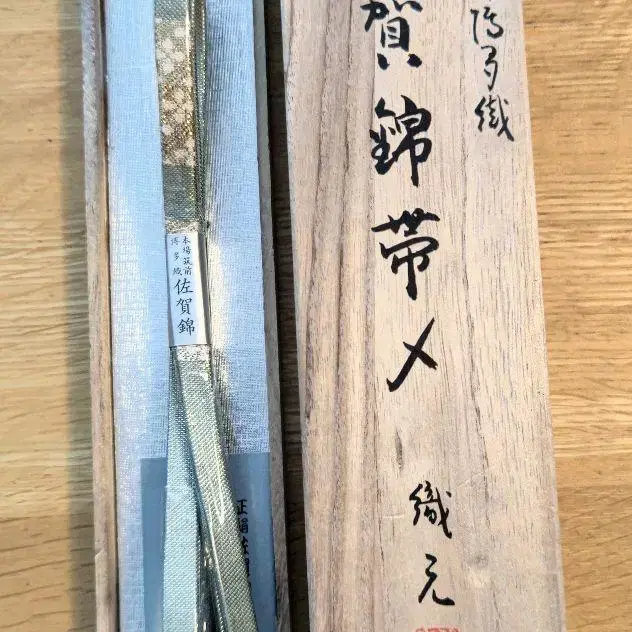 博多織
賀錦帯〆
織元
本場筑前
博多織
佐賀錦
正絹佐